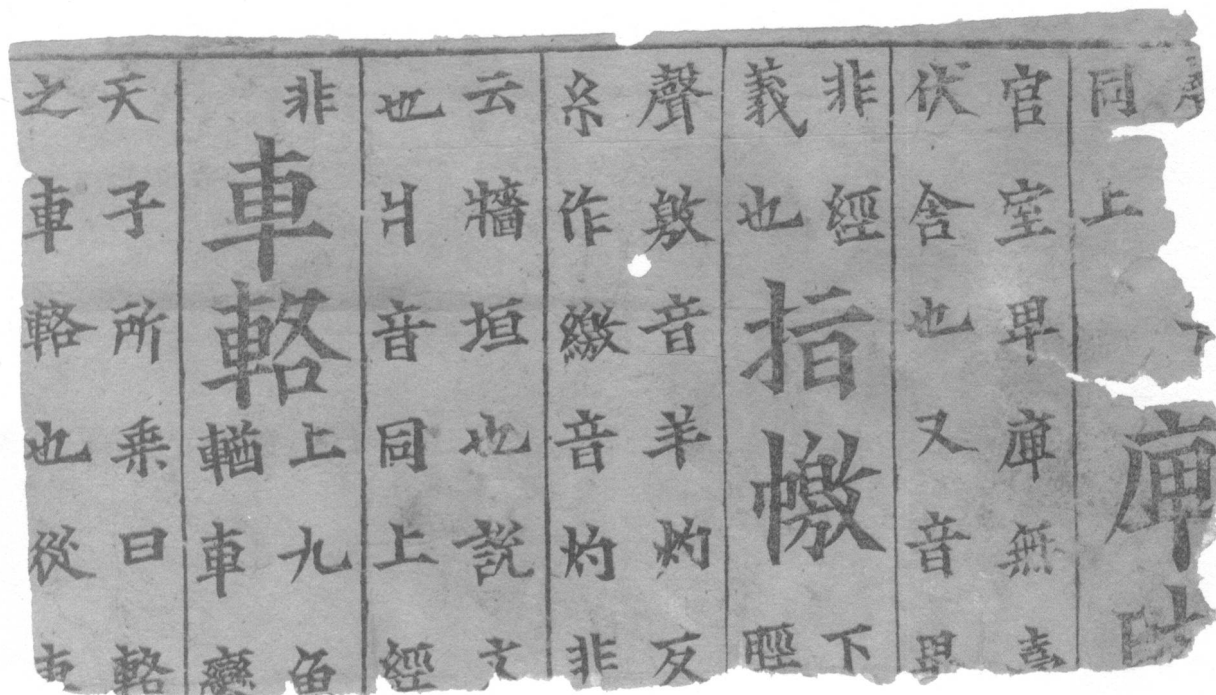 同上
庳
官室卑庳無
伏舍也又音
非經
義也
指
下
脛
聲敫音羊灼反
糸作繳音灼非
云牆垣也說文
也爿音同上經
非
車輅
上九魚
車
天子所乗曰輅
之車輅也從車